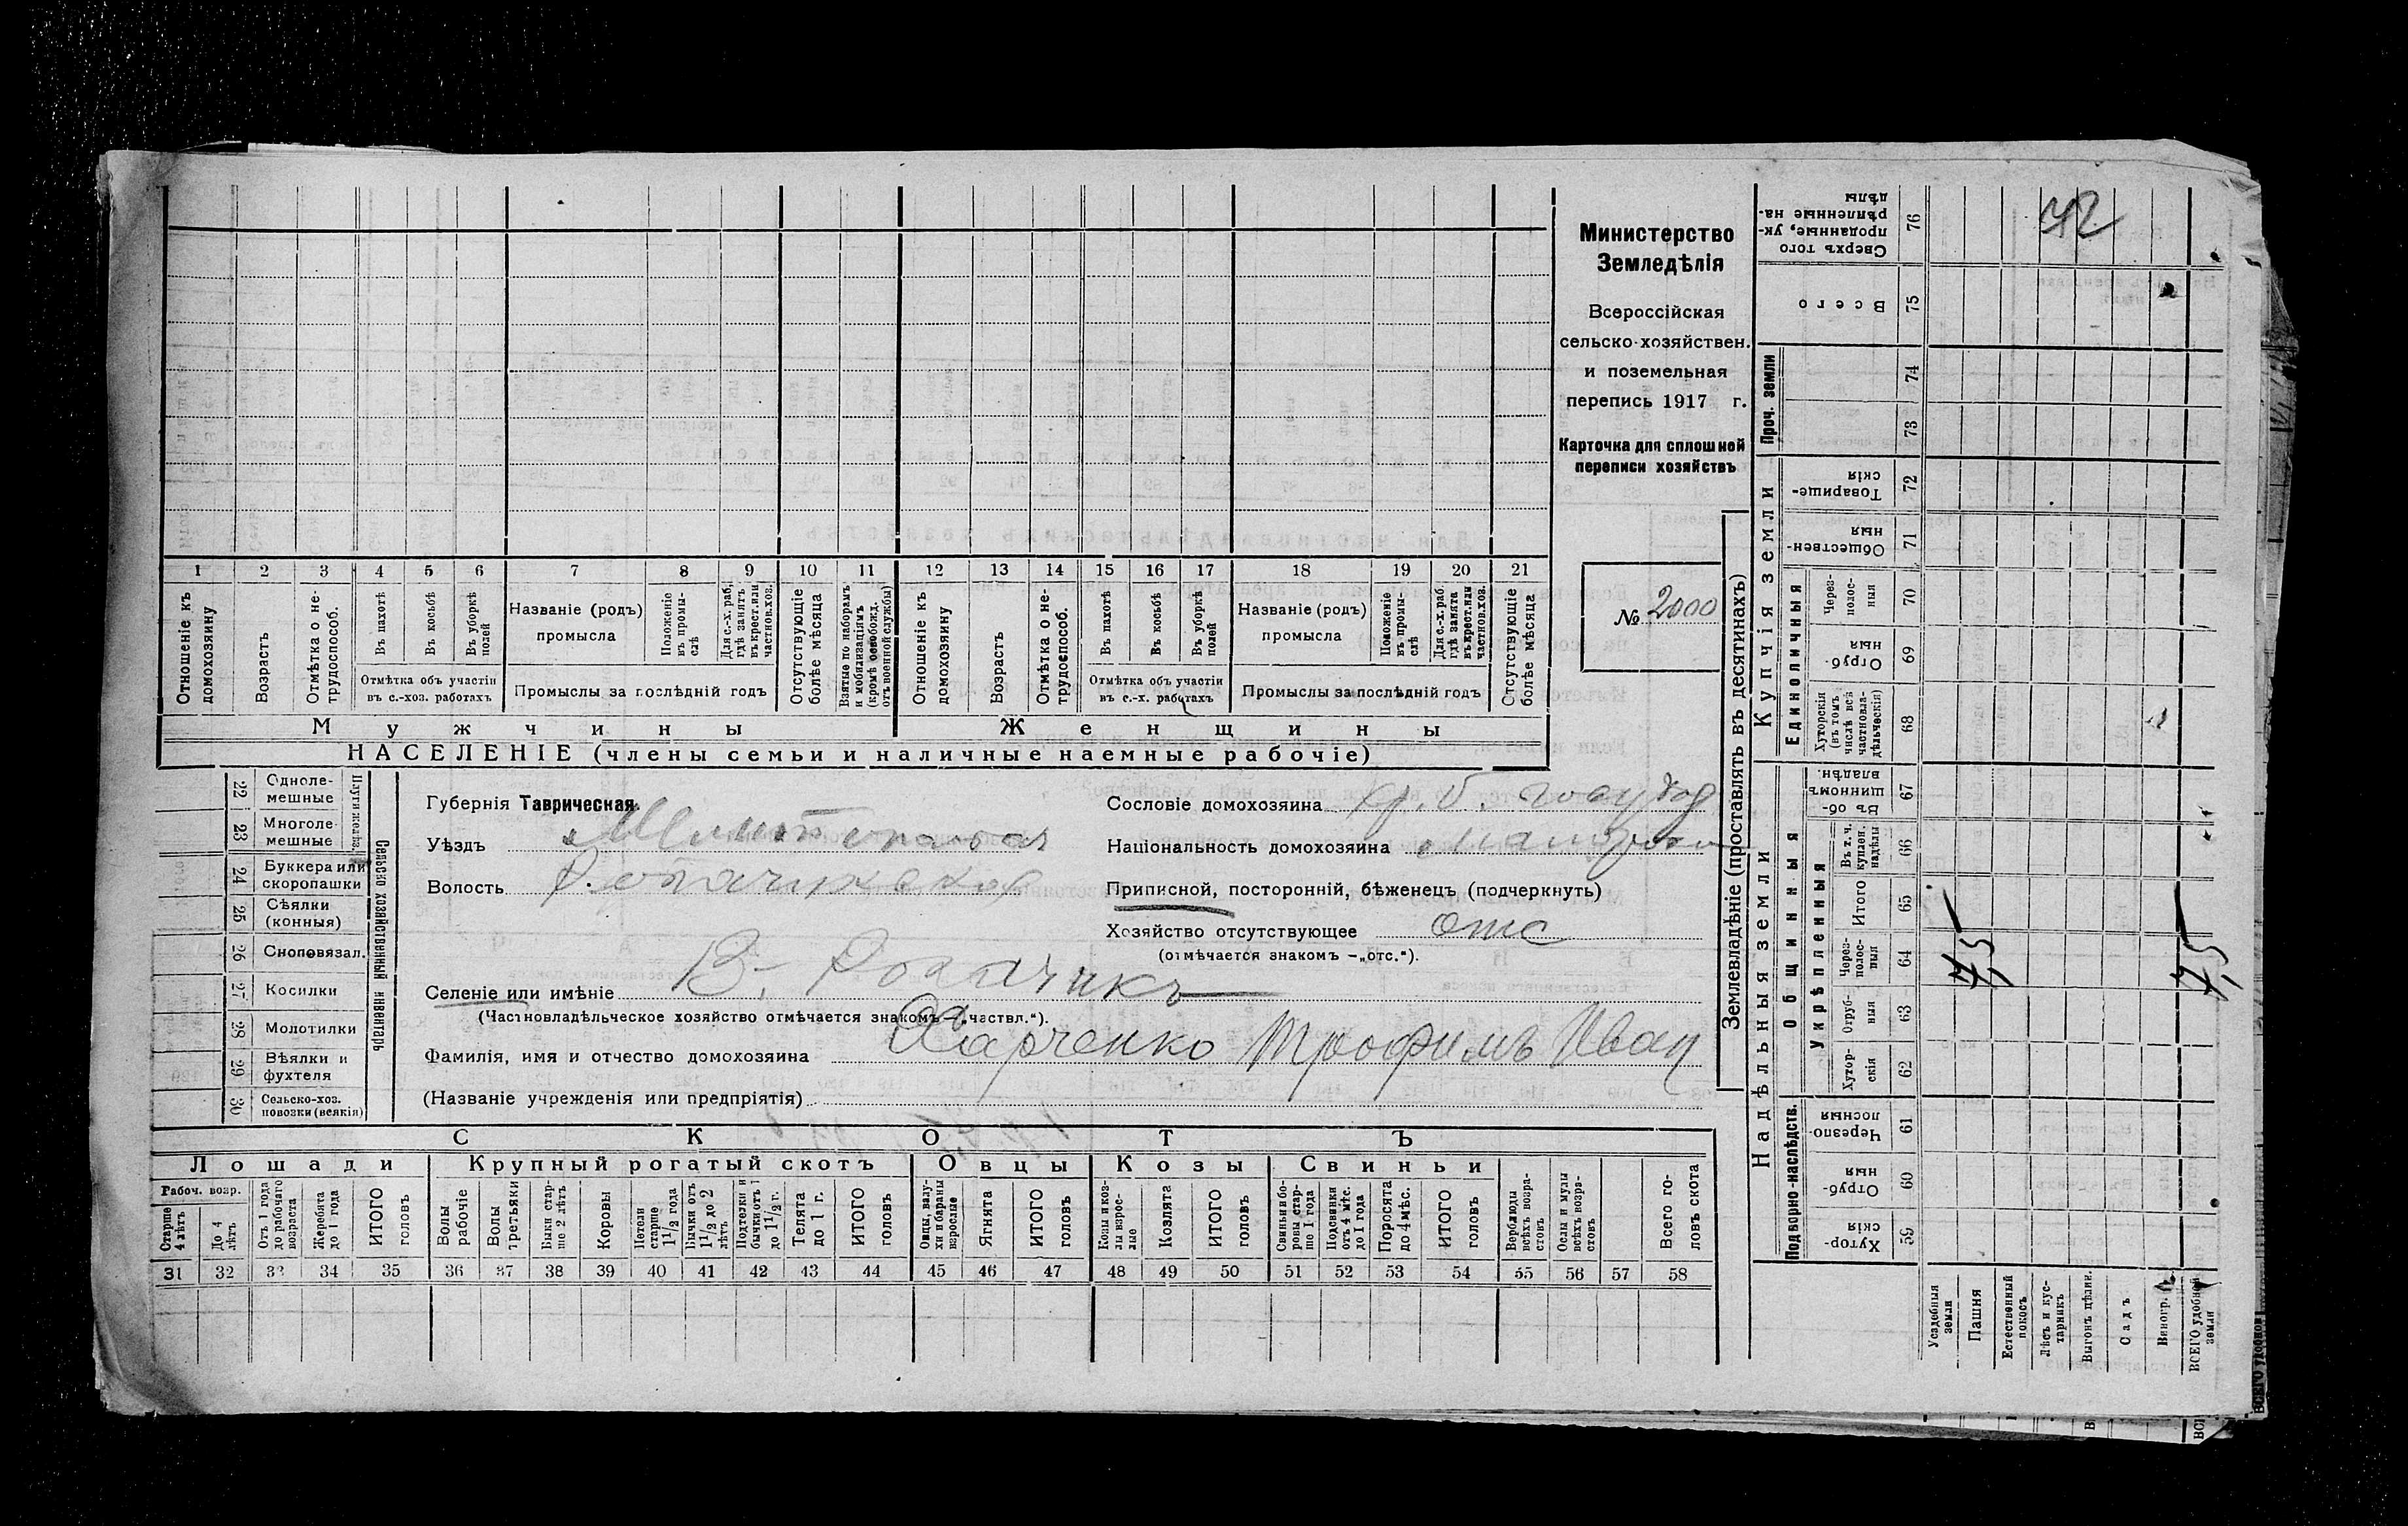 Министерство
Земледѣлія
Всероссійская
сельско-хозяйствен.
и поземельная
перепись 1917 г.
Карточка для сплошной
переписи хозяйствъ
№ 2000
1 2 3 4 5 6 7 8 9 10 11 12 13 14 15 16 17 18 19 20 21
Отношеніе къ домохозяину
Возрастъ
Отмѣтка о не-трудоспособ.
Въ пахотѣ
Въ косьбѣ
Въ уборкѣ полей
Отмѣтка объ участіи
въ с.-хоз. работахъ
Названіе (родъ)
промысла
Положеніе въ промы-слѣ
Для с.-х. раб. гдѣ занятъ въ крест. или частнов. хоз.
Промыслы за послѣдній годъ
Отсутствующіе болѣе мѣсяца
Взятые по наборамъ и мобилизаціямъ (кромѣ освобожд. отъ военной службы)
Отношеніе къ домохозяину
Возрастъ
Отмѣтка о не-трудоспособ.
Въ пахотѣ
Въ косьбѣ
Въ уборкѣ полей
Отмѣтка объ участіи
въ с.-х. работахъ
Названіе (родъ)
промысла
Положеніе въ промы-слѣ
Для с.-х. раб. гдѣ занята въ крест. или частнов. хоз.
Промыслы за послѣдній годъ
Отсутствующіе болѣе мѣсяца
Мужчины
Женщины
НАСЕЛЕНІЕ (члены семьи и наличные наемные рабочіе)
Сельско хозяйственный инвентарь
Плуги желѣз.
22 Одноле-мешные
23 Многоле-мешные
24 Буккера или скоропашки
25 Сѣялки (конныя)
26 Сноповязал.
27 Косилки
28 Молотилки
29 Вѣялки и фухтеля
30 Сельско-хоз. повозки (всякія)
Губернія Таврическая
Уѣздъ
Волость
Сословіе домохозяина
Національность домохозяина
Приписной, посторонній, бѣженецъ (подчеркнуть)
Хозяйство отсутствующее отс
(отмѣчается знакомъ —„отс.“).
Селеніе или имѣніе В. Рогачикъ
(Частновладѣльческое хозяйство отмѣчается знакомъ —„частвл.“).
Фамилія, имя и отчество домохозяина Харченко Трофимъ Иван
(Названіе учрежденія или предпріятія)
СКОТЪ
Лошади
Крупный рогатый скотъ
Овцы
Козы
Свиньи
Рабоч. возр.
Старше 4 лѣтъ
До 4 лѣтъ
Отъ 1 года до рабочаго возраста
Жеребята до 1 года
ИТОГО головъ
Волы рабочіе
Волы третьяки
Быки стар-ше 2 лѣтъ
Коровы
Нетели старше 1 1/2 года
Бычки отъ 1 1/2 до 2 лѣтъ
Подтелки и бычки отъ 1 до 1 1/2 г.
Телята до 1 г.
ИТОГО головъ
Овцы, валу-хи и бараны взрослые
Ягнята
ИТОГО головъ
Козы и коз-лы взрос-лые
Козлята
ИТОГО головъ
Свиньи и бо-ровы стар-ше 1 года
Подсвинки отъ 4 мѣс. до 1 года
Поросята до 4 мѣс.
ИТОГО головъ
Верблюды всѣхъ возра-стовъ
Ослы и мулы всѣхъ возра-стовъ
Всего го-ловъ скота
31 32 33 34 35 36 37 38 39 40 41 42 43 44 45 46 47 48 49 50 51 52 53 54 55 56 57 58
Землевладѣніе (проставлять въ десятинахъ)
Купчія земли
Надѣльныя земли
Проч. земли
Единоличныя
Общинныя
Укрѣпленныя
Подворно-наслѣдств.
Сверхъ того проданные, ук-рѣпленные на-дѣлы 76
Всего 75
74
73
Товарище-скія 72
Обществен-ныя 71
Через-полос-ныя 70
Отруб-ныя 69
Хуторскія (въ томъ числѣ всѣ частновла-дѣльческія) 68
Въ об-щинномъ владѣн. 67
Въ т. ч. куплен. надѣлы 66
Итого 65
Через-полос-ныя 64
Отруб-ныя 63
Хутор-скія 62
Черезпо-лосныя 61
Отруб-ныя 60
Хутор-скія 59
Усадебныя земли
Пашня
Естественный покосъ
Лѣсъ и кус-тарникъ
Выгонъ цѣлин.
Садъ
Виногр.
ВСЕГО удобной земли
42
7,5
7,5